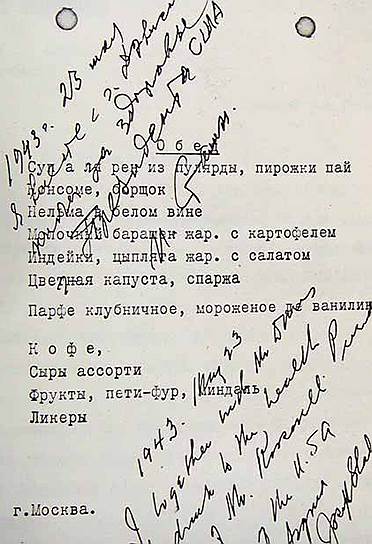 1943г. 23 мая
Я вместе с
за здоровье
Президента США
Сталин.
О б е
Суп а ля рен из пулярды, пирожки пай
Консоме, борщок
Нельма в белом вине
Молочный барашек жар. с картофелем
Индейки, цыплята жар. с салатом
Цветная капуста, спаржа
Парфе клубничное, мороженое де ванилин
К о ф е,
Сыры ассорти
Фрукты, пети-фур, миндаль
Ликеры
1943. May 23
I together with Mr
drink to the health
of Mr. Roosevelt
of the U.S.A
Signed
Joseph Stal
г.Москва.